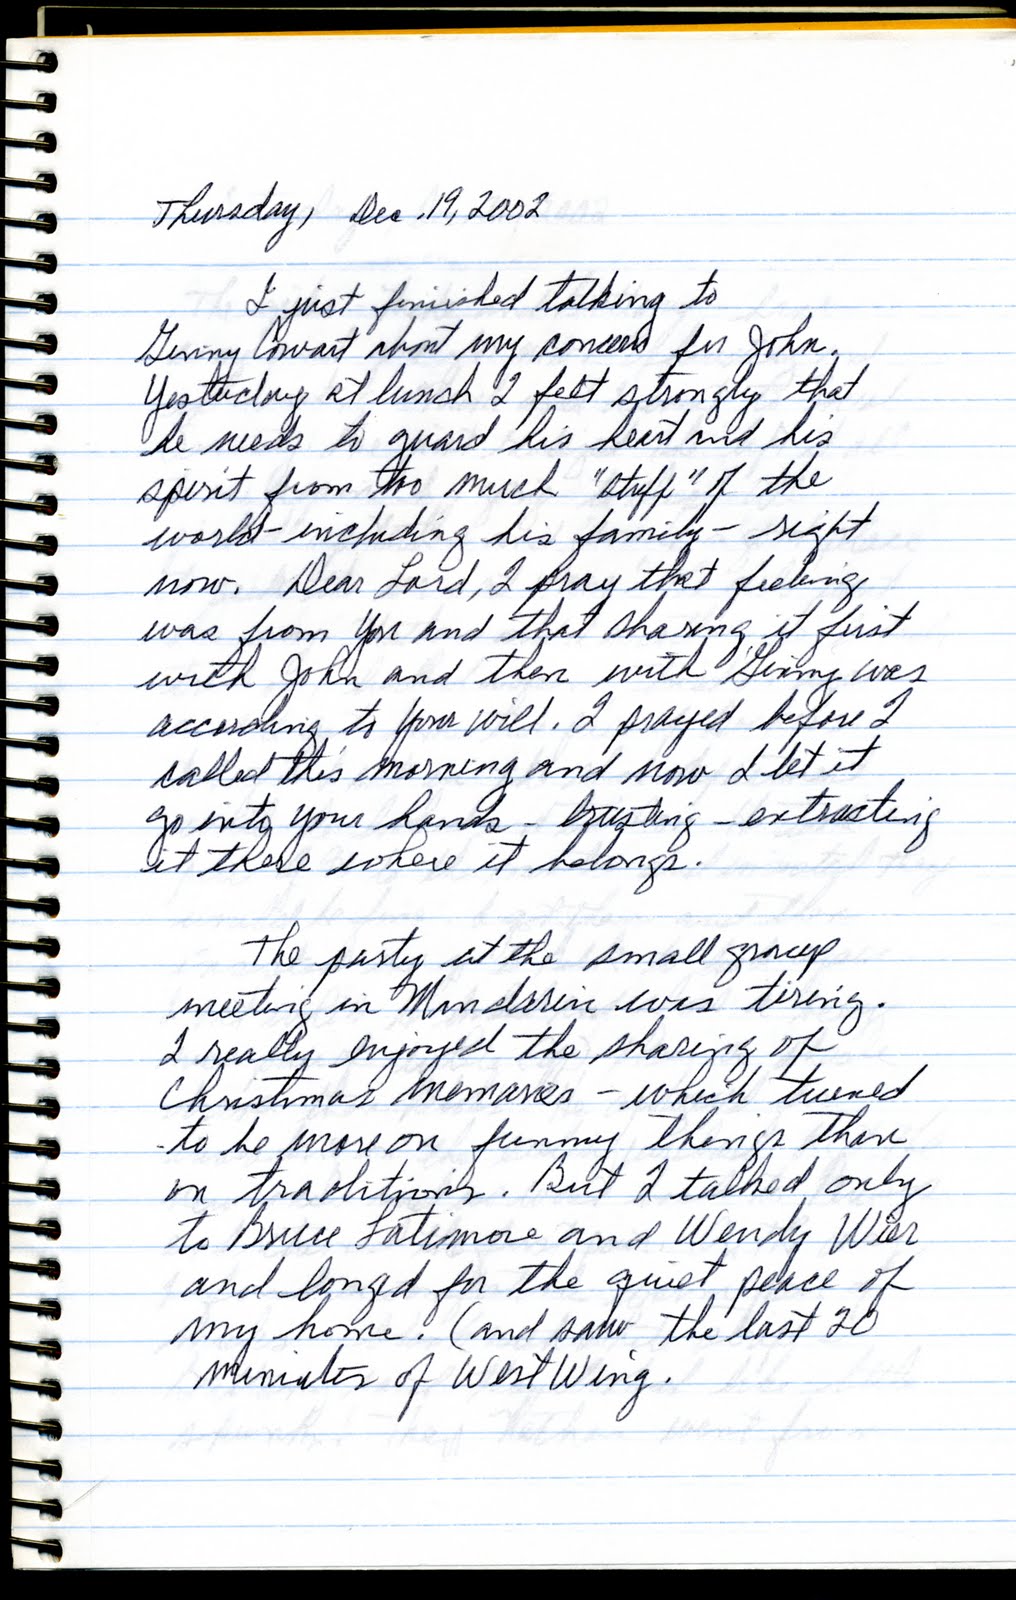 Thursday, Dec. 19, 2002
I just finished talking to
Ginny Cowart about my concern for John.
Yesterday at lunch I felt strongly that
he needs to guard his heart and his
spirit from too much "stuff" of the
world - including his family - right
now. Dear Lord, I pray that feeling
was from You and that sharing it first
with John and then with Ginny was
according to Your will. I prayed before I
called this morning and now I let it
go into your hands - trusting - entrusting
it there where it belongs.
The party at the small group
meeting in Mandarin was tiring.
I really enjoyed the sharing of
Christmas memories - which turned
to be more on funny things than
on traditions. But I talked only
to Bruce Latimore and Wendy Wier
and longed for the quiet peace of
my home. (and saw the last 20
minutes of West Wing.